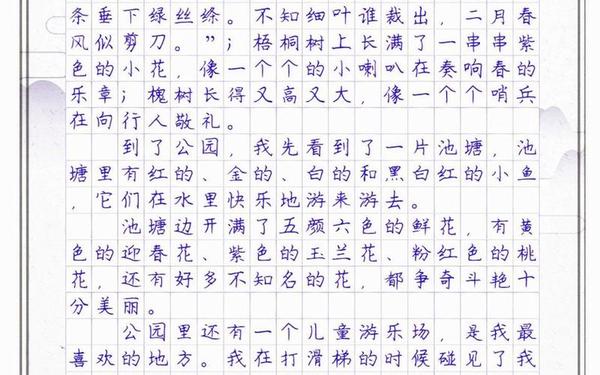 条垂下绿丝绦。不知细叶谁裁出，二月春
风似剪刀。”；梧桐树上长满了一串串紫
色的小花，像一个个的小喇叭在奏响春的
乐章；槐树长得又高又大，像一个个哨兵
在向行人敬礼。
到了公园，我先看到了一片池塘，池
塘里有红的、金的、白的和黑白红的小鱼
，它们在水里快乐地游来游去。
池塘边开满了五颜六色的鲜花，有黄
色的迎春花、紫色的玉兰花、粉红色的桃
花，还有好多不知名的花，都争奇斗艳十
分美丽。
公园里还有一个儿童游乐场，是我最
喜欢的地方。我在打滑梯的时候碰见了我